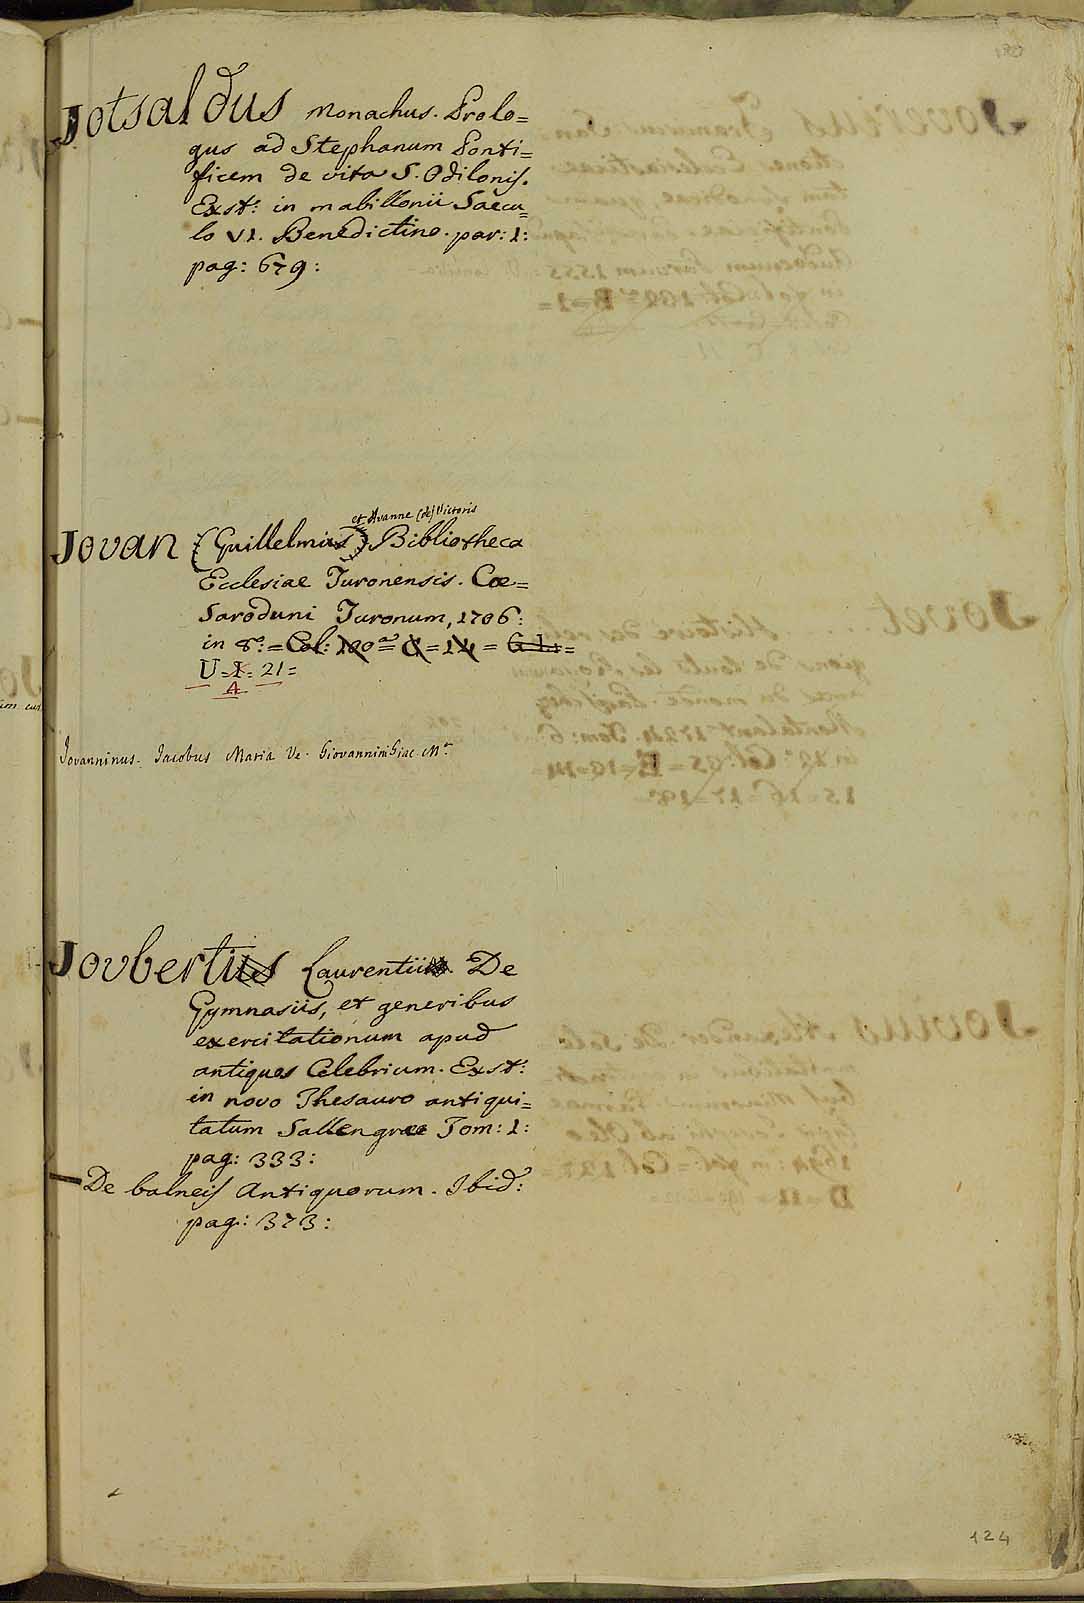 Jotsaldus Monachus. Prolo=
gus ad Stephanum Ponti=
ficem de vita S. Odilonis.
Exst: in mabillonii Saecu=
lo VI. Benedictino. par: 1:
pag: 679:
et Avanne (de) Victoris
Jovan (Guillelmus) Bibliotheca
Ecclesiae Turonensis. Cae=
Saroduni Turonum, 1706:
in 8º: = Col: 100ª = C = 14 = G 1: =
U = I = 21 =
A
Jovanninus. Jacobus Maria Ve. Giovannini Giac. Mª
Joubertus Laurentii De
Gymnasiis, et generibus
exercitationum apud
antiquos Celebrium. Exst:
in novo Thesauro antiqui=
tatum Sallengrae Tom: 1:
pag: 333:
— De balneis Antiquorum. Ibid:
pag: 373:
124